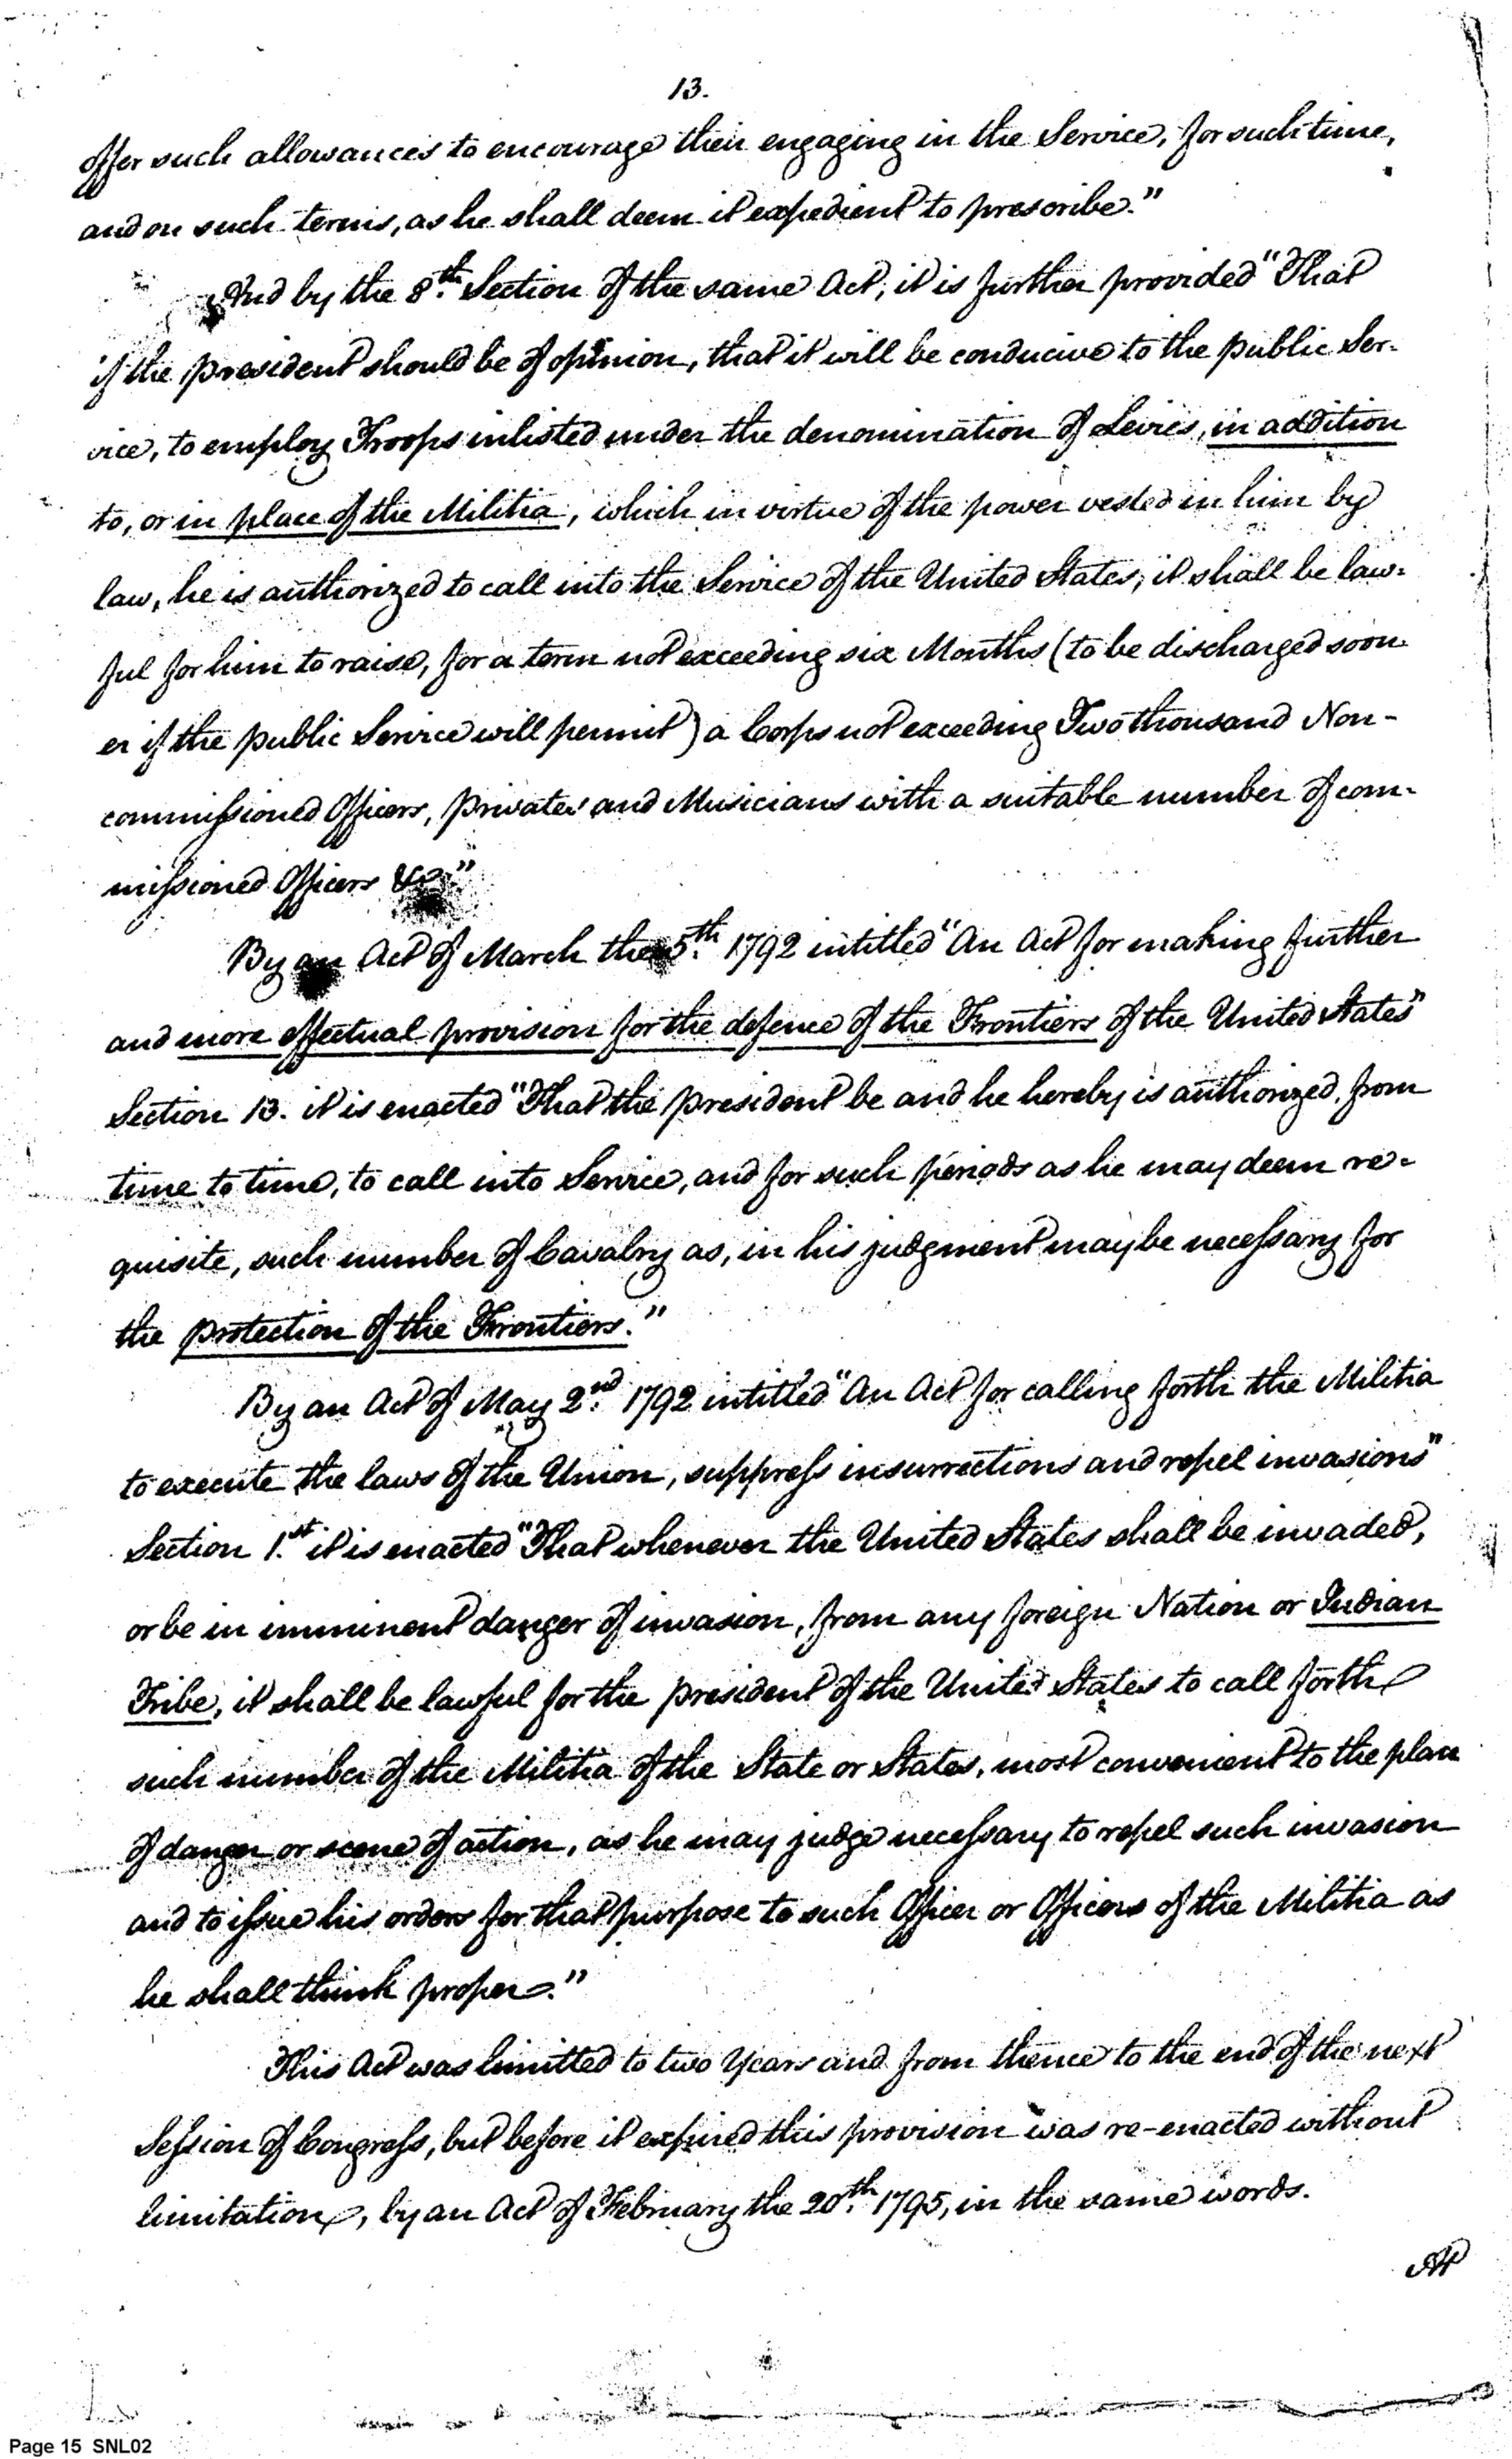 13.
offer such allowances to encourage their engaging in the Service, for such time,
and on such terms, as he shall deem it expedient to prescribe."
And by the 8th. Section of the same Act, it is further provided "That
if the president should be of opinion, that it will be conducive to the public Ser-
vice, to employ Troops inlisted under the denomination of Levies, in addition
to, or in place of the Militia, which in virtue of the power vested in him by
law, he is authorized to call into the Service of the United States, it shall be law-
ful for him to raise, for a term not exceeding six Months (to be discharged soon-
er if the public Service will permit) a Corps not exceeding Two thousand Non-
commissioned Officers, privates and Musicians with a suitable number of com-
missioned Officers &c."
By an Act of March the 5th. 1792 intitled "An Act for making further
and more effectual provision for the defence of the Frontiers of the United States"
Section 13. it is enacted "That the president be and he hereby is authorized, from
time to time, to call into Service, and for such periods as he may deem re-
quisite, such number of Cavalry as, in his judgment may be necessary for
the protection of the Frontiers."
By an Act of May 2nd. 1792 intitled "An Act for calling forth the Militia
to execute the laws of the Union, suppress insurrections and repel invasions"
Section 1.st it is enacted "That whenever the United States shall be invaded,
or be in imminent danger of invasion, from any foreign Nation or Indian
Tribe, it shall be lawful for the president of the United States to call forth
such number of the Militia of the State or States, most convenient to the place
of danger or scene of action, as he may judge necessary to repel such invasion
and to issue his orders for that purpose to such Officer or Officers of the Militia as
he shall think proper."
This Act was limitted to two Years and from thence to the end of the next
Session of Congress, but before it expired this provision was re-enacted without
limitation, by an Act of February the 20th. 1795, in the same words.
Page 15 SNL02